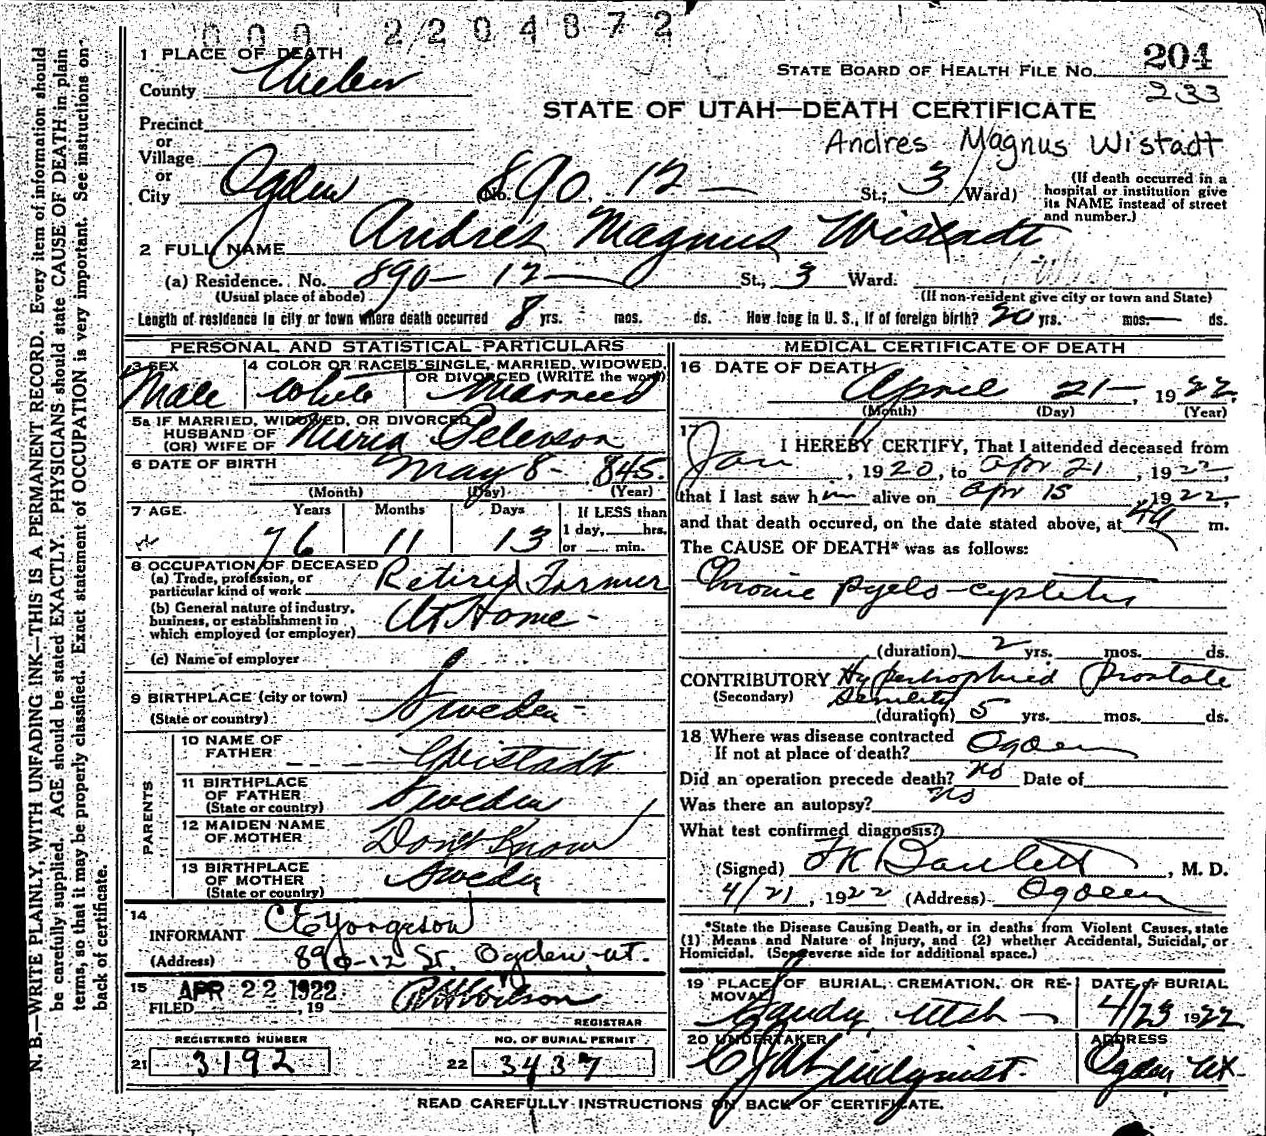 000 2204872
1 PLACE OF DEATH
204
STATE BOARD OF HEALTH FILE No.
233
County
STATE OF UTAH—DEATH CERTIFICATE
Precinct
Andres Magnus Wistadt
or
Village
or
City Ogden (No. 890. 12 — St.; 3 Ward)
(If death occurred in a hospital or institution give its NAME instead of street and number.)
2 FULL NAME Andres Magnus Wistadt
(a) Residence. No. 890 - 12 — St.; 3 Ward.
(Usual place of abode) (If non-resident give city or town and State)
Length of residence in city or town where death occurred 8 yrs. mos. ds. How long in U. S., if of foreign birth? 50 yrs. mos. — ds.
PERSONAL AND STATISTICAL PARTICULARS
3 SEX Male
4 COLOR OR RACE White
5 SINGLE, MARRIED, WIDOWED, OR DIVORCED (WRITE the word) Married
5a IF MARRIED, WIDOWED, OR DIVORCED
HUSBAND OF
(OR) WIFE OF Peterson
6 DATE OF BIRTH May 8 - 845.
(Month) (Day) (Year)
7 AGE. Years Months Days If LESS than
1 day, hrs.
76 11 13 or min.
8 OCCUPATION OF DECEASED
(a) Trade, profession, or
particular kind of work Retired Farmer
(b) General nature of industry,
business, or establishment in
which employed (or employer) At Home -
(c) Name of employer
9 BIRTHPLACE (city or town)
(State or country) Sweden -
PARENTS
10 NAME OF
FATHER Wistadt
11 BIRTHPLACE
OF FATHER
(State or country) Sweden
12 MAIDEN NAME
OF MOTHER Don't Know
13 BIRTHPLACE
OF MOTHER
(State or country) Sweden
14
INFORMANT C E Yorgeson
(Address) 890-12 St. Ogden, ut.
15 APR 22 1922
FILED , 19 Wilson
REGISTRAR
REGISTERED NUMBER NO. OF BURIAL PERMIT
21 3192 22 3437
MEDICAL CERTIFICATE OF DEATH
16 DATE OF DEATH April 21 — , 1922.
(Month) (Day) (Year)
17
I HEREBY CERTIFY, That I attended deceased from
Jan , 1920, to Apr 21 , 1922,
that I last saw him alive on Apr 15 1922,
and that death occured, on the date stated above, at m.
The CAUSE OF DEATH* was as follows:
Chronic Pyelo-cystitis
(duration) 2 yrs. mos. ds.
CONTRIBUTORY Hypertrophied Prostate
(Secondary) Senility
(duration) 5 yrs. mos. ds.
18 Where was disease contracted
If not at place of death? Ogden
Did an operation precede death? no Date of
Was there an autopsy? no
What test confirmed diagnosis?
(Signed) Bartlett , M. D.
4/21 , 1922 (Address) Ogden
*State the Disease Causing Death, or in deaths from Violent Causes, state
(1) Means and Nature of Injury, and (2) whether Accidental, Suicidal, or
Homicidal. (See reverse side for additional space.)
19 PLACE OF BURIAL, CREMATION, OR RE-
MOVAL Sandy, Utah
DATE of BURIAL
4/23 1922
20 UNDERTAKER Lindquist.
ADDRESS
Ogden Ut.
READ CAREFULLY INSTRUCTIONS ON BACK OF CERTIFICATE.
N. B.—WRITE PLAINLY, WITH UNFADING INK—THIS IS A PERMANENT RECORD. Every item of information should
be carefully supplied. AGE should be stated EXACTLY. PHYSICIANS should state CAUSE OF DEATH in plain
terms, so that it may be properly classified. Exact statement of OCCUPATION is very important. See instructions on
back of certificate.